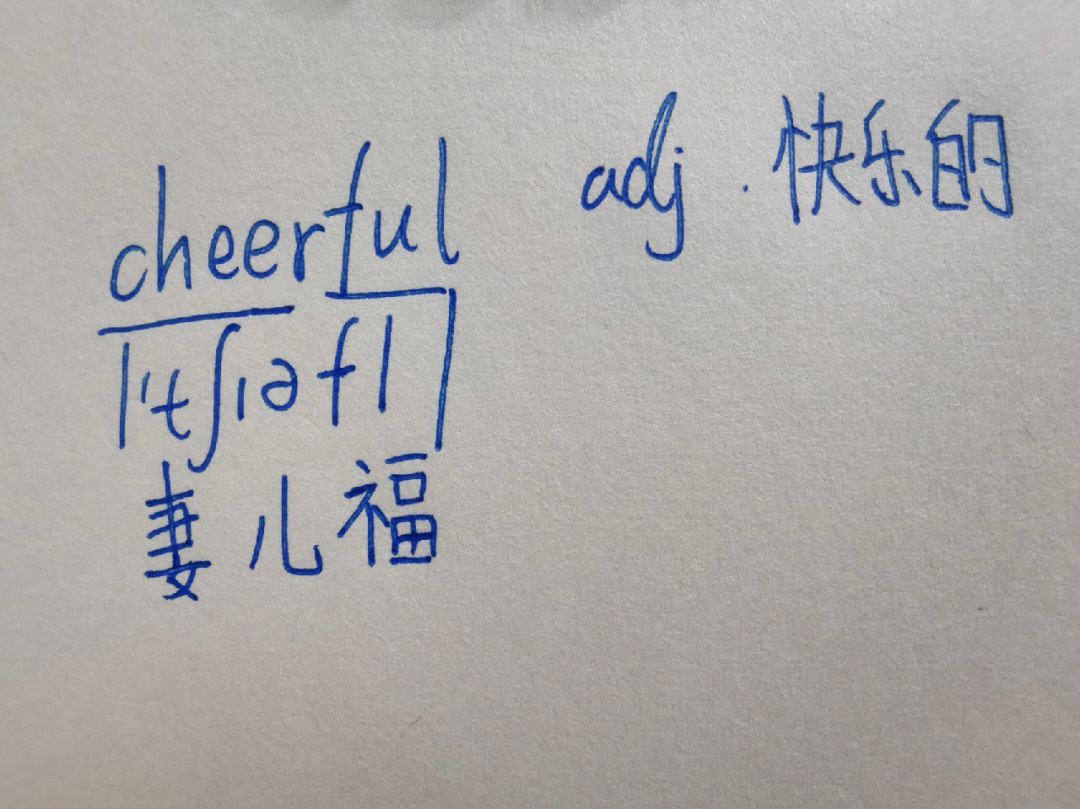 cheerful adj. 快乐的
|'tʃıəfl|
妻儿福